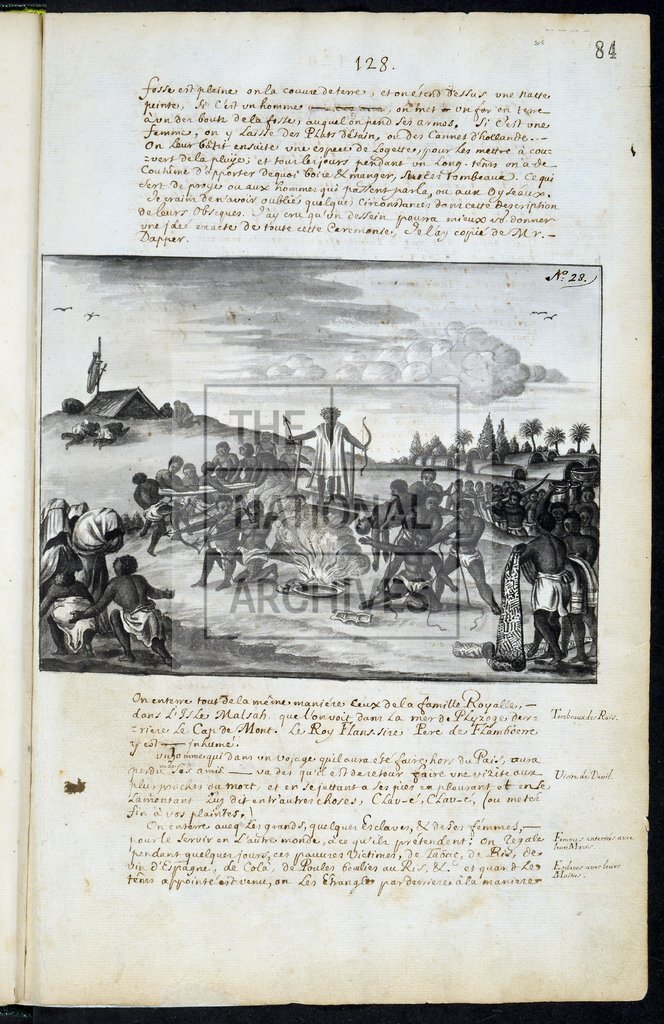 84
128.
fosse est pleine on la couvre de terre, et on étend dessus une natte
peinte, Si C'est un homme on met un fer en terre
à un des bouts de la fosse, auquel on pend ses armes, Si c'est une
femme, on y Laisse des Plats d'étain, ou des Cannes d'hollande.
On Leur bâtit ensuite une espece de Logette, pour Les mettre à cou-
vert de la pluye; et tous les jours pendant un Long-tems on a de
Coutume d'apporter dequoi boire & manger, sur ces tombeaux. Ce qui
sert de proye ou aux hommes qui passent par la, ou aux Oyseaux.
Je crain d'en avoir oublié quelques Circonstances dans cette description
de leurs Obseques. J'ay cru qu'un dessein pourra mieux vo. donner
une idée exacte de toute cette Ceremonie, Je l'ay copié de Mr.
Dapper.
No. 28.
THE
NATIONAL
ARCHIVES
On enterre tout de la même maniere Ceux de la famille Royalle,
dans L'Isle Malsah que l'on voit dans La mer de Plyzoge der-
riere Le Cap de Mont. Le Roy Flansire Pere de Flamboere
y est inhumé.
Tombeaux de Rois.
un homme qui dans un voyage qu'il aura été faire hors du Pais, aura
perdu ses amis va des qu'il est de retour faire une visite aux
plus proches du mort, et en se jettant a ses pies en pleurant et en se
Lamentant Luy dit entr'autres choses, Clav-e, Clav-e, (ou meter
fin à vos plaintes.)
Visite de Deuil.
On enterre aveq Les grands, quelques Esclaves, & de ses femmes,
pour le servir en L'autre monde, à ce qu'ils prétendent: On regale
pendant quelques jours, ces pauvres Victimes, de Tabac, de Ris, de
vin d'Espagne, de Cola, de Poules boullies au Ris, &c. et quand Le
têms appointé est venu, on Les Etrangle par derriere à la maniere
Femmes enterrées avec
leurs Maris.
Esclaves avec leurs
Maîtres.